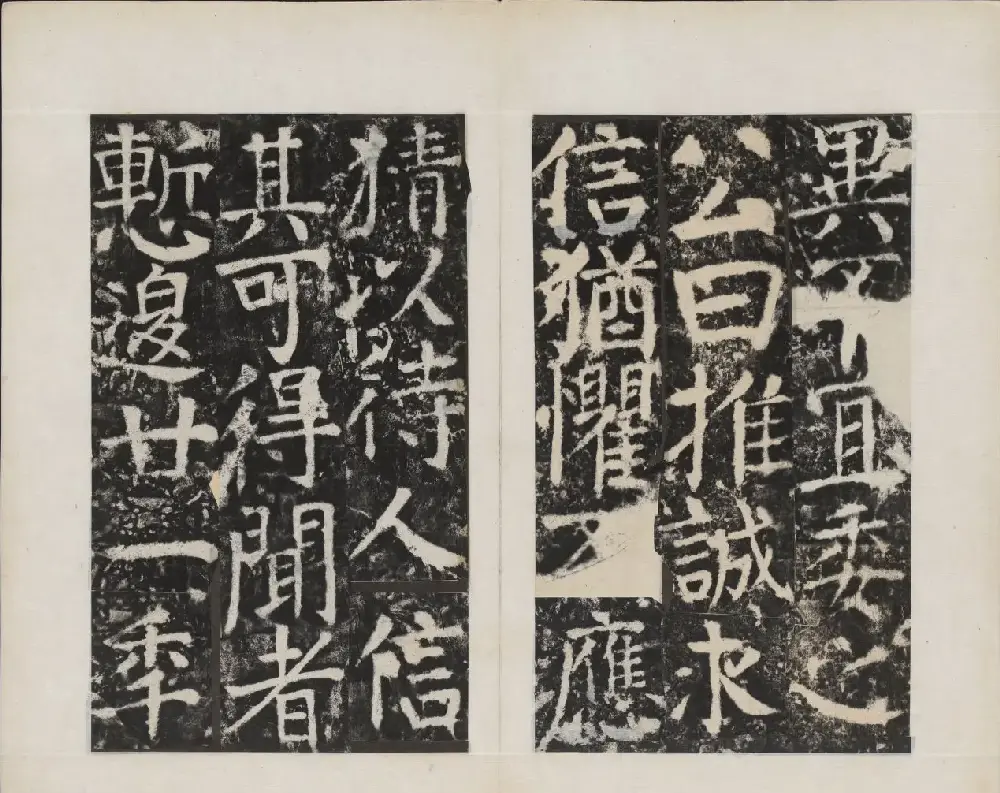 異不宜委
公曰推誠求
信猶懼不應
猜以待人信
其可得聞者
慙退廿一季